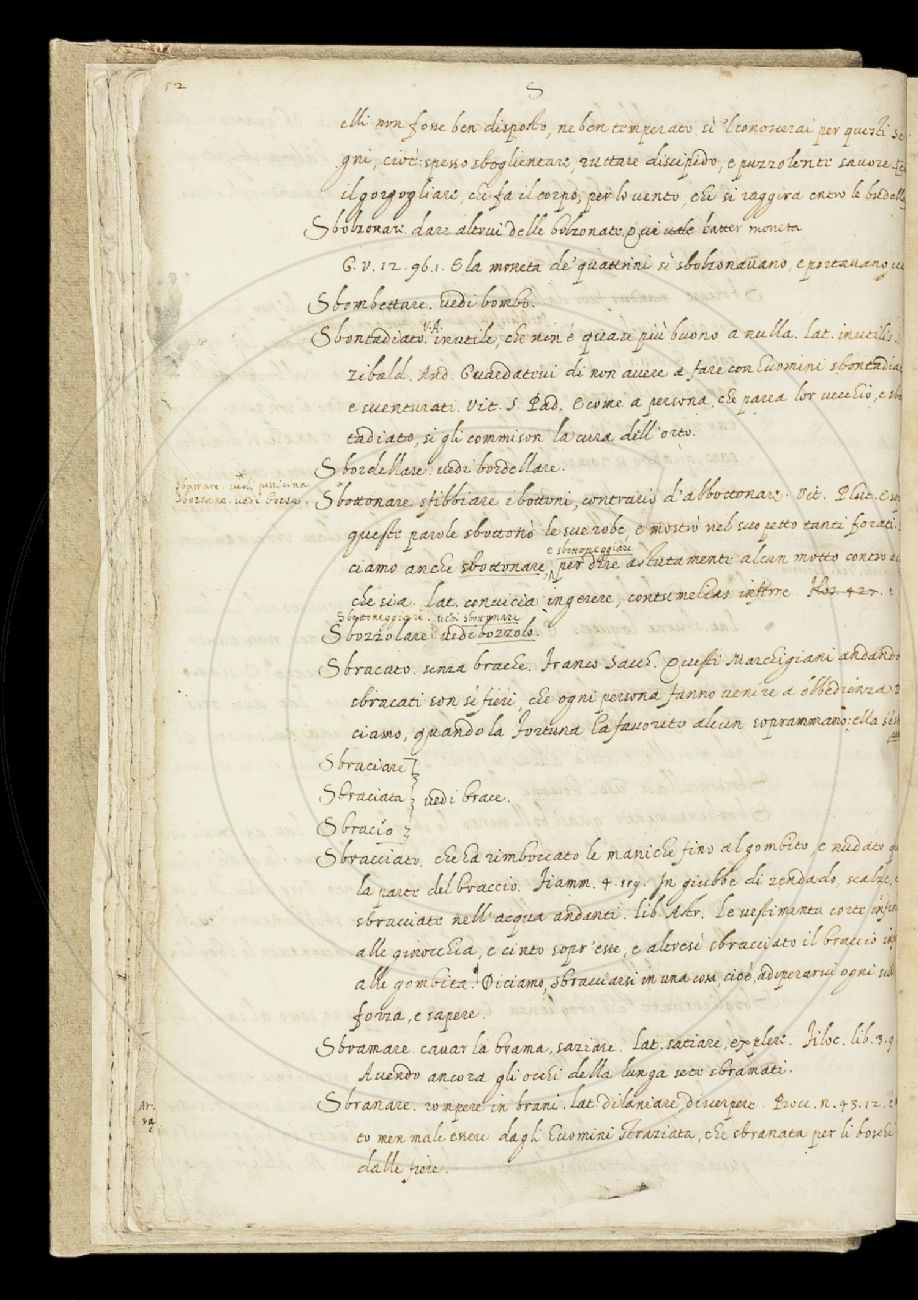 52
S
elli non fosse ben disposto, ne ben temperato sì 'l conoscerai per questi se
gni, cioè: spesso sboglientare, ruttare discipido, e puzzolente savore
il gorgogliare, che fa il corpo, per lo vento, che si raggira entro le budella
Sbolzonare. dare altrui delle bolzonate. Qui vale batter moneta
G. V. 12. 96. 1. E la moneta de' quattrini sì sbolzonavano, e portavano
Sbombettare. vedi bombo.
V.A.
Sbontadiato. inutile, che non è quasi più buono a nulla. Lat. inutilis.
Zibald. And. Guardatevi di non avere a fare con huomini sbontadia
e sventurati. Vit. S. Pad. E come a persona, che parea lor vecchio, e sbo
tadiato, si gli commison la cura dell'orto.
Sbordellare: vedi bordellare.
Sborrare. vedi
Sborsare. vedi borsa.
Sbottonare. sfibbiare i bottoni, contrario d'abbottonare. Vit. Plut. E
queste parole sbottonò le sue robe, e mostrò nel suo petto tanti forati.
e sbottoneggiare
ciamo anche sbottonare, per dire astutamente alcun motto contro
che sia. Lat. convicia ingerere, contumelias inferre.
Sbottoneggiare. vedi sbottonare
Sbozzolare vedi bozzolo.
Sbracato. senza brache. Franco Sacch. Questi Marchigiani andando
sbracati son sì fieri, che ogni persona fanno venire a obbedienza
ciamo, quando la Fortuna ha favorito alcun soprammano: ella s'è
Sbraciare
Sbraciata } vedi brace.
Sbracio
Sbracciato. che ha rimboccato le maniche fino al gombito, e nudato
la parte del braccio. Fiamm. 4. 159. In giubbe di zendado, scalze,
sbracciate nell'acqua andanti. lib. Astr. Le vestimenta corte infin
alle ginocchia, e cinto sopr'esse, e altresì sbracciato il braccio in
alle gombita. Diciamo, sbracciarsi in una cosa, cioè, adoperarvi ogni su
forza, e sapere.
Sbramare. cavar la brama, saziare. Lat. satiare, explere. Filoc. lib. 3. 9
Avendo ancora gli occhi della lunga sete sbramati.
Sbranare. rompere in brani. Lat. dilaniare, discerpere. Bocc. n. 43. 12.
to men male essere dagli huomini straziata, che sbranata per li boschi
dalle fiere.